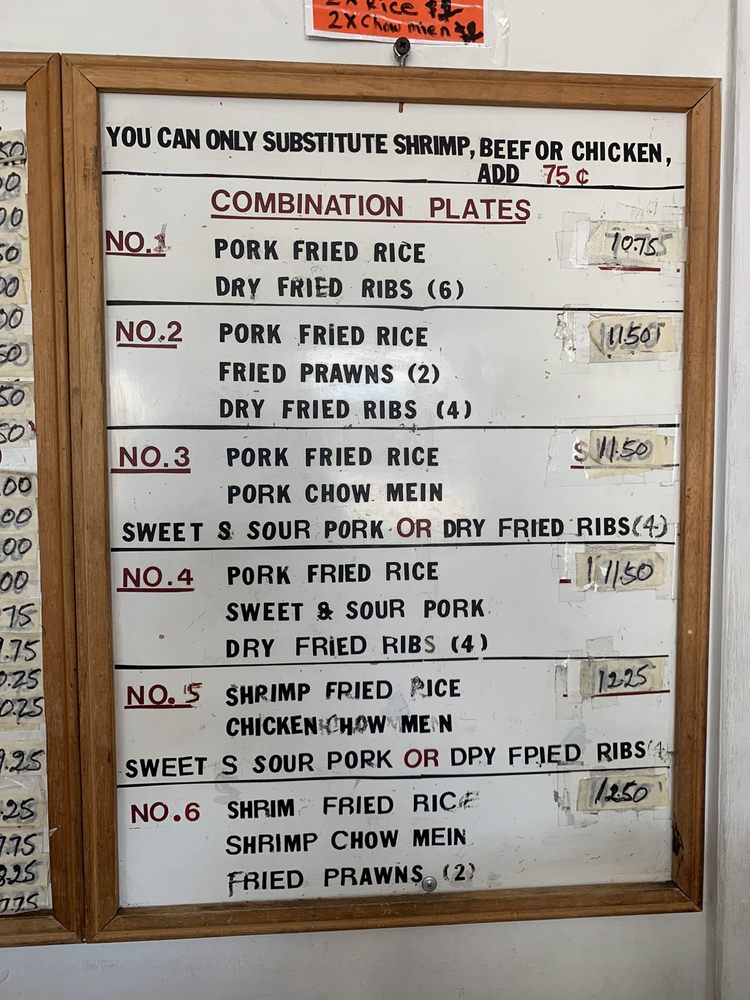 2X Rice $2
2X Chow mien $2
YOU CAN ONLY SUBSTITUTE SHRIMP, BEEF OR CHICKEN,
ADD 75¢
COMBINATION PLATES
NO.1 PORK FRIED RICE 10.75
DRY FRIED RIBS (6)
NO.2 PORK FRIED RICE 11.50
FRIED PRAWNS (2)
DRY FRIED RIBS (4)
NO.3 PORK FRIED RICE $11.50
PORK CHOW MEIN
SWEET S SOUR PORK OR DRY FRIED RIBS (4)
NO.4 PORK FRIED RICE 11.50
SWEET & SOUR PORK
DRY FRIED RIBS (4)
NO.5 SHRIMP FRIED RICE 12.25
CHICKEN CHOW ME N
SWEET S SOUR PORK OR DPY FPIED RIBS (4)
NO.6 SHRIM FRIED RICE 12.50
SHRIMP CHOW MEIN
FRIED PRAWNS (2)
50
00
50
00
00
50
50
50
.00
00
.00
00
75
.75
0.25
0.25
9.25
.25
9.75
8.25
7.75